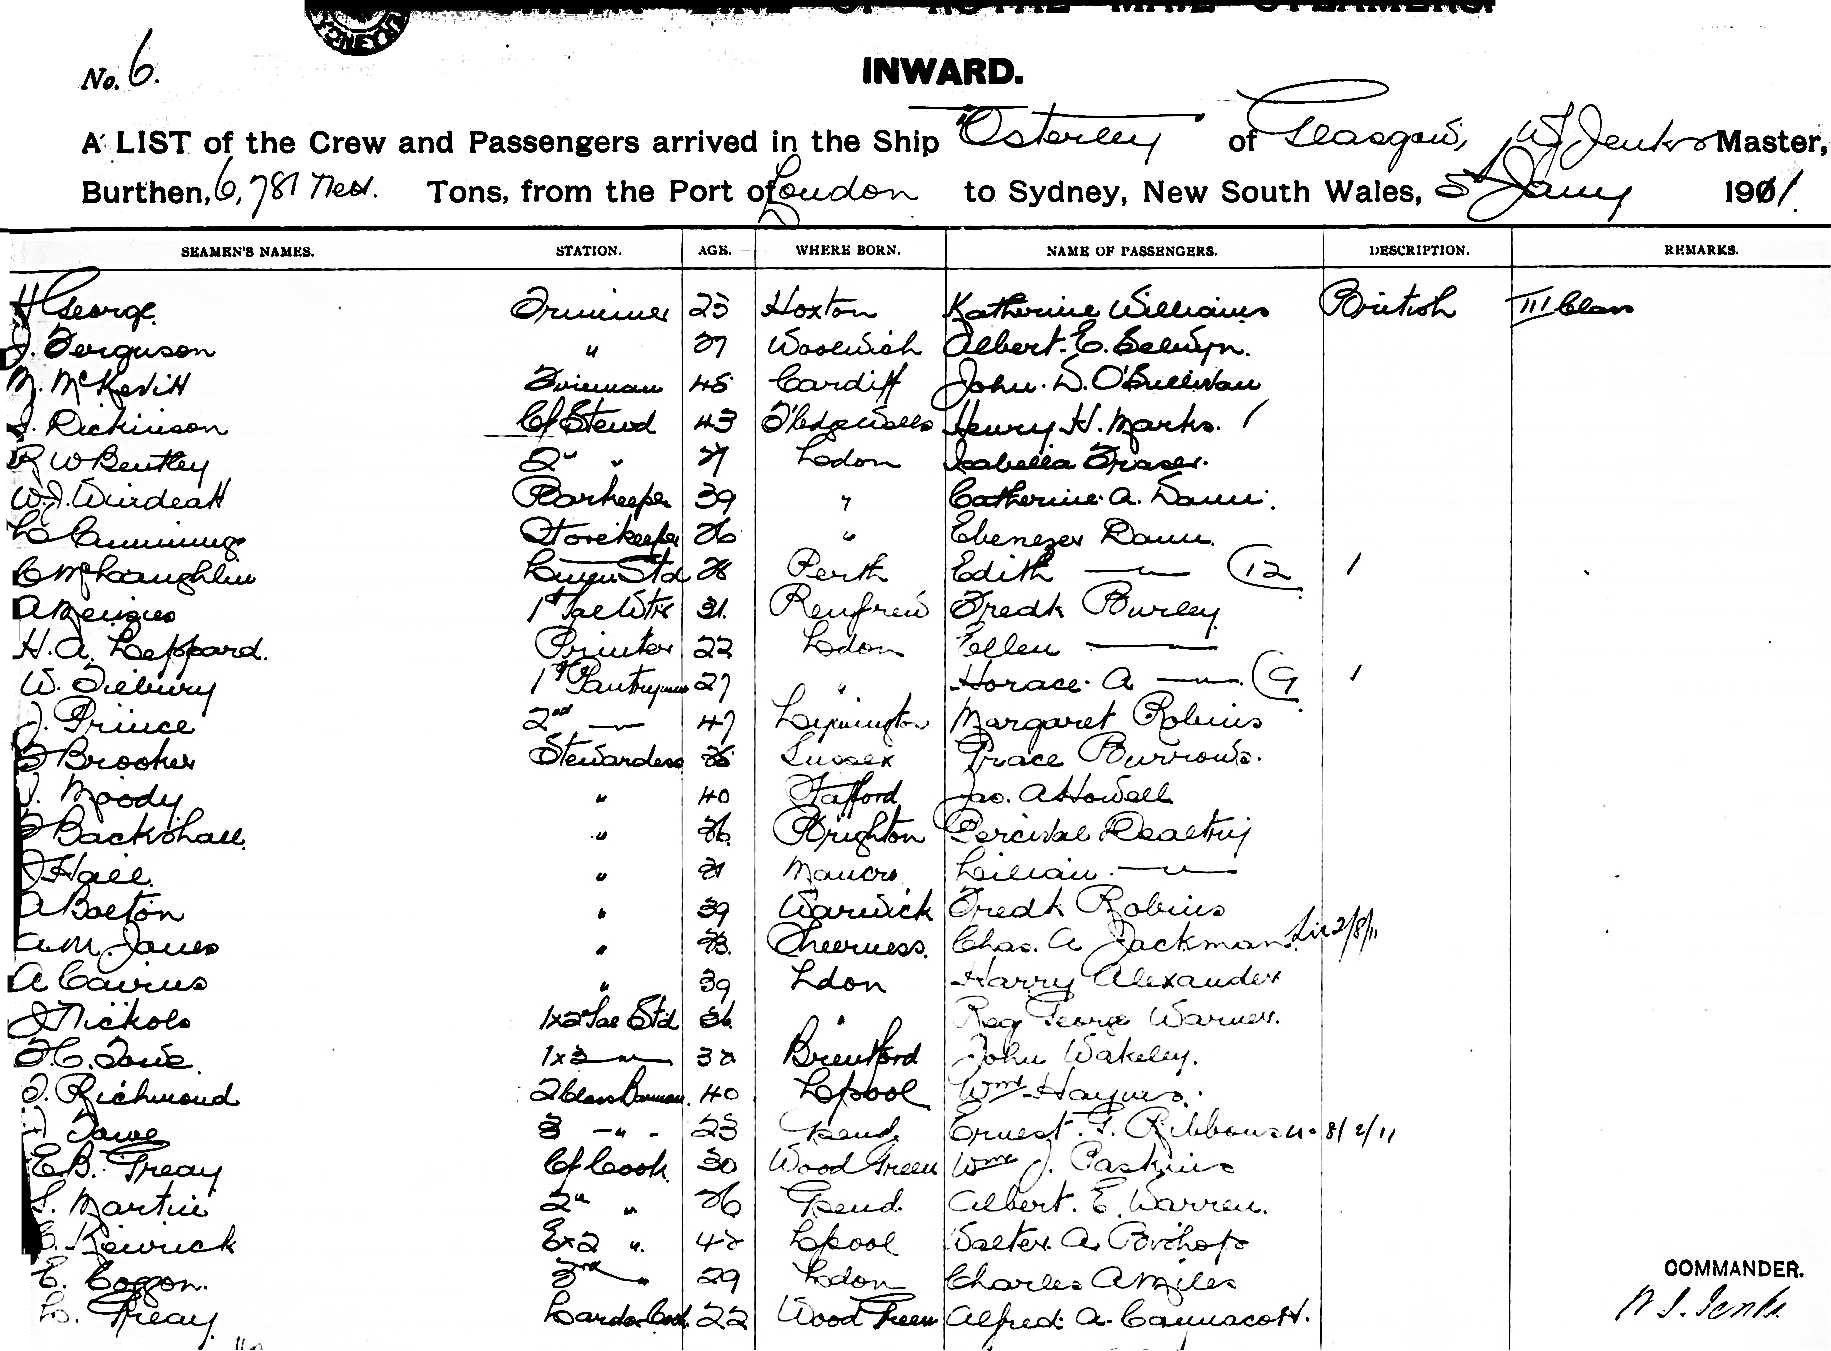 ROYAL MAIL STEAMERS.
No. 6.
INWARD.
A LIST of the Crew and Passengers arrived in the Ship "Osterley" of Glasgow, W J Jenks Master,
Burthen, 6,781 Nett. Tons, from the Port of London to Sydney, New South Wales, 5th Jany 1911.
SEAMEN'S NAMES. STATION. AGE. WHERE BORN. NAME OF PASSENGERS. DESCRIPTION. REMARKS.
H George. Trimmer 23 Hoxton Katherine Williams British III Class
J. Ferguson " 27 Woolwich Albert. E. Selwyn.
M. McKevitt Fireman 45 Cardiff John. D. O'Sullivan
J. Dickinson Cf Stewd 43 Henry H. Marks. /
R W Bentley 2" " 27 Ldon Isabella Fraser.
W. J. Barkeeper 39 " Catherine. A. Dann.
L Cummings Storekeeper 26 " Ebenezer Dann.
C McLaughlin Linen Std 28 Perth Edith — (12 /
A Menzies 1st 31. Renfrew Fredk Burley
H. A. Leppard. Printer 22 Ldon Ellen —
W. 1st Pantryman 27 " Horace. A — (9 /
J. Prince 2nd — 47 Lymington Margaret Robins
Brooker Stewardess 35 Sussex Grace Burrows.
J. Moody " 40 Stafford Jas. A Howell
Backshall. " 36 Brighton Percival Dealtry
J Hall. " Manchr. Lilian. —
A Bolton " 39 Warwick Fredk Robins
A. M. Janes " Sheerness. Chas. A Jackman. 2/8/11
A Cairns " 39 Ldon Harry Alexander
J Nickols 1x2 Sal Std 36 " Reg George Warner.
F. C. Towe. 1x3 — 38 Brentford John Wakeley.
J. Richmond 2 Class Barman. 40 Lpool Wm. Haynes.
Towe 3 - " - 23 Gsend. Ernest. G. Ribbons 8/2/11
E B. Greay Cf Cook. 30 Wood Green Wm J. Paskins
S. Martin 2" " 26 Gsend. Albert. E. Warren.
Kewick Ex 2 " Lpool Walter. A. Bishop
E. Coggon. 3rd " 29 Ldon Charles A Miles
L. Greay. Larder Cook. 22 Wood Green Alfred. A. Cannacott.
COMMANDER.
W. J. Jenks.